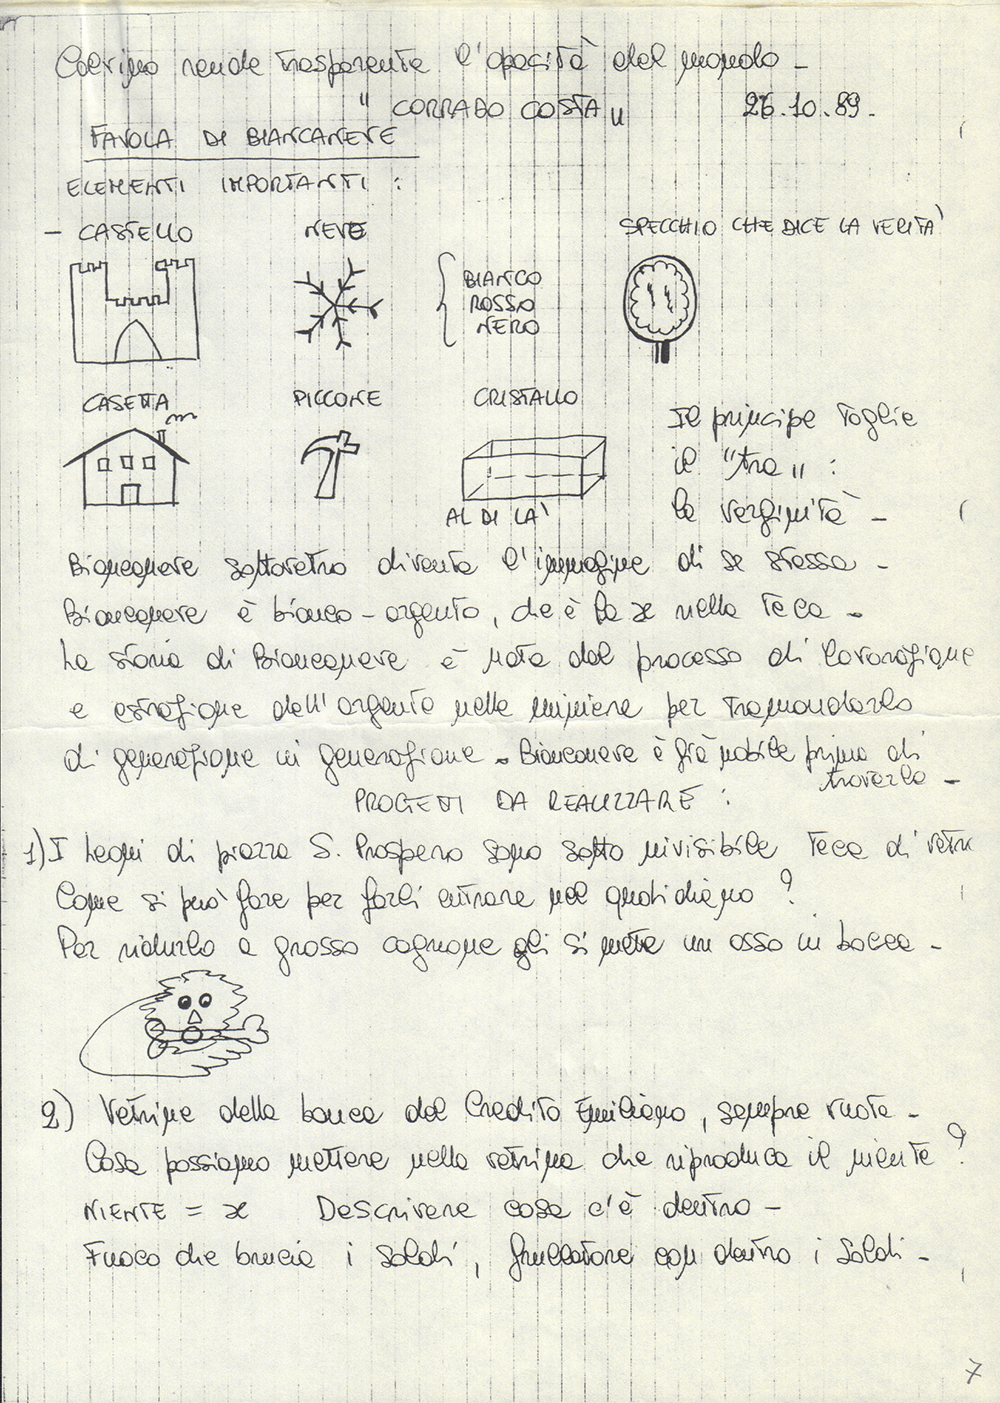 Calvino rende trasparente l'opacità del mondo -
" CORRADO COSTA " 26.10.89.
FAVOLA DI BIANCANEVE
ELEMENTI IMPORTANTI :
- CASTELLO NEVE SPECCHIO CHE DICE LA VERITA'
BIANCO
ROSSO
NERO
CASETTA PICCONE CRISTALLO
Il principe toglie
il "tra" :
la verginità -
AL DI LA'
Biancaneve sottovetro diventa l'immagine di se stessa -
Biancaneve è bianco-argento, che è la x nella teca -
La storia di Biancaneve è nata dal processo di lavorazione
e estrazione dell'argento nelle miniere per tramandarlo
di generazione in generazione. Biancaneve è già nobile prima di
trovarlo -
PROGETTI DA REALIZZARE :
1) I Leoni di piazza S. Prospero sono sotto invisibile teca di vetro
Come si può fare per farli entrare nel quotidiano ?
Per ridurlo a grosso cagnone gli si mette un osso in bocca -
2) Vetrine della banca del Credito Emiliano, sempre vuote -
Cosa possiamo mettere nella vetrina che riproduca il niente ?
NIENTE = x Descrivere cosa c'è dentro -
Fuoco che brucia i soldi, frullatore con dentro i soldi -
7